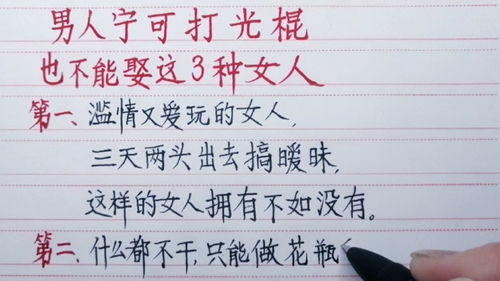 男人宁可打光棍
也不能娶这3种女人
第一、滥情又爱玩的女人，
三天两头出去搞暧昧，
这样的女人拥有不如没有。
第二、什么都不干，只能做花瓶